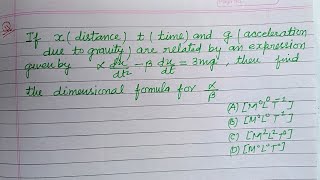 If x (distance) t (time) and g (acceleration
due to gravity) are related by an expression
given by α d²x/dt² - β dx/dt = 3mg, then find
the dimensional formula for α/β
(A) [M⁰L⁰T⁻¹]
(B) [M⁰L⁰T¹]
(C) [M¹L²T⁰]
(D) [M⁰L⁰T⁰]